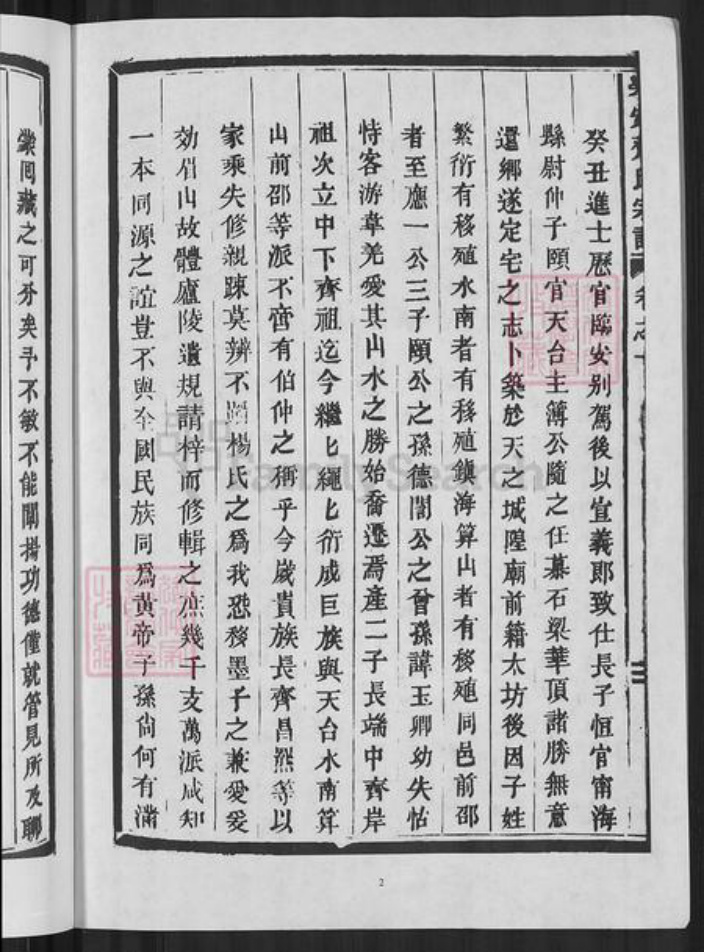 癸丑進士歷官臨安別駕後以宣義郎致仕長子恒官甯海
縣尉仲子頤官天台主簿公隨之任慕石梁華頂諸勝無意
還鄉遂定宅之志卜築於天之城隍廟前籍太坊後因子姓
繁衍有移殖水南者有移殖鎮海算山者有移殖同邑前邵
者至應一公三子頤公之孫德閏公之曾孫諱玉卿幼失怙
恃客游韋羌愛其山水之勝始喬遷焉產二子長端中齊岸
祖次立中下齊祖迄今繼匕繩匕衍成巨族與天台水南算
山前邵等派不啻有伯仲之稱乎今歲貴族長齊昌熙等以
家乘失修親踈莫辨不歸楊氏之為我恐務墨子之兼愛爰
効眉山故體廬陵遺規請梓而修輯之庶幾千支萬派咸知
一本同源之誼豈不與全國民族同為黃帝子孫尙何有滿
蒙回藏之可分矣予不敏不能闡揚功德僅就管見所及聊
氏宗譜
卷之
2
FamilySearch